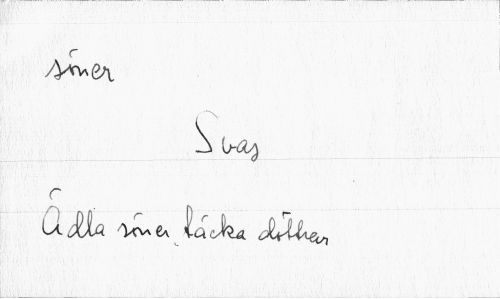 söner
Svas
Ädla söner, täcka döttrar